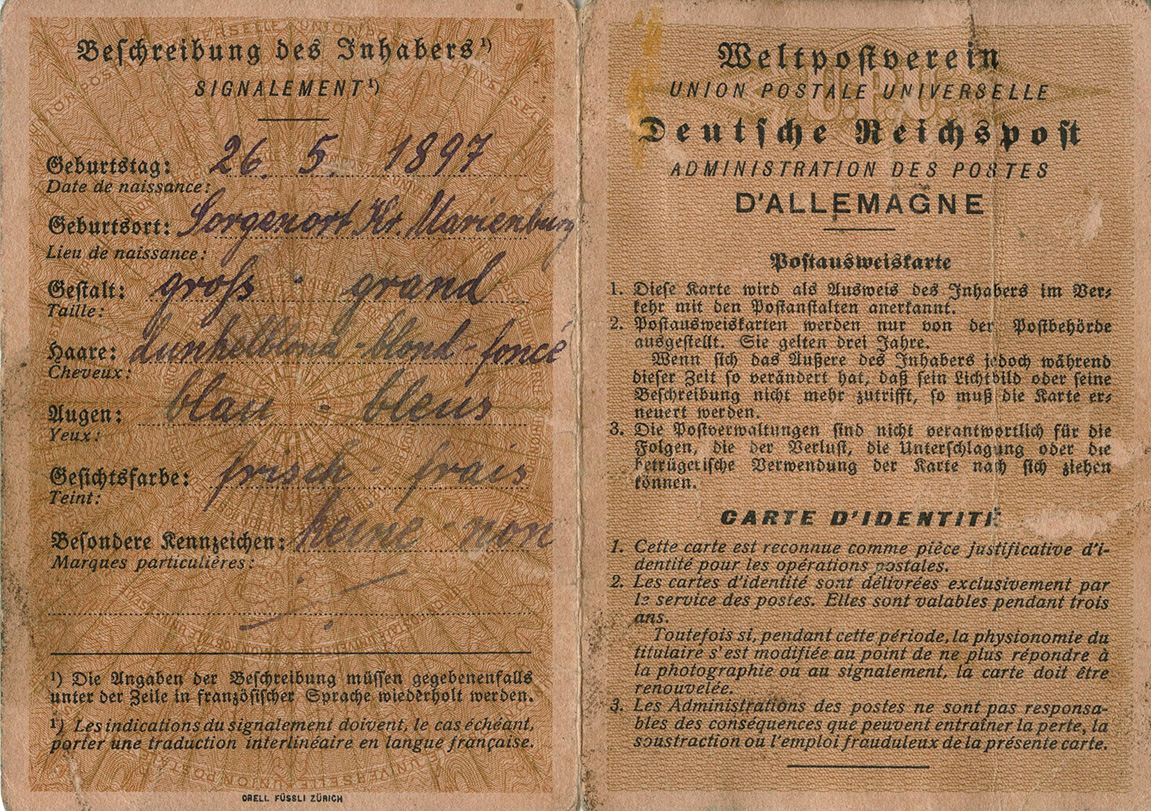 Beschreibung des Inhabers¹)
SIGNALEMENT¹)
Geburtstag: 26. 5. 1897
Date de naissance:
Geburtsort: Sorgenort Kr. Marienburg
Lieu de naissance:
Gestalt: groß - grand
Taille:
Haare: dunkelblond - blond-foncé
Cheveux:
Augen: blau - bleus
Yeux:
Gesichtsfarbe: frisch - frais
Teint:
Besondere Kennzeichen: keine - non
Marques particulières:
¹) Die Angaben der Beschreibung müssen gegebenenfalls
unter der Zeile in französischer Sprache wiederholt werden.
¹) Les indications du signalement doivent, le cas échéant,
porter une traduction interlinéaire en langue française.
ORELL FÜSSLI ZÜRICH
Weltpostverein
UNION POSTALE UNIVERSELLE
Deutsche Reichspost
ADMINISTRATION DES POSTES
D'ALLEMAGNE
Postausweiskarte
1. Diese Karte wird als Ausweis des Inhabers im Ver-
kehr mit den Postanstalten anerkannt.
2. Postausweiskarten werden nur von der Postbehörde
ausgestellt. Sie gelten drei Jahre.
Wenn sich das Äußere des Inhabers jedoch während
dieser Zeit so verändert hat, daß sein Lichtbild oder seine
Beschreibung nicht mehr zutrifft, so muß die Karte er-
neuert werden.
3. Die Postverwaltungen sind nicht verantwortlich für die
Folgen, die der Verlust, die Unterschlagung oder die
betrügerische Verwendung der Karte nach sich ziehen
können.
CARTE D'IDENTITÉ
1. Cette carte est reconnue comme pièce justificative d'i-
dentité pour les opérations postales.
2. Les cartes d'identité sont délivrées exclusivement par
le service des postes. Elles sont valables pendant trois
ans.
Toutefois si, pendant cette période, la physionomie du
titulaire s'est modifiée au point de ne plus répondre à
la photographie ou au signalement, la carte doit être
renouvelée.
3. Les Administrations des postes ne sont pas responsa-
bles des conséquences que peuvent entraîner la perte, la
soustraction ou l'emploi frauduleux de la présente carte.